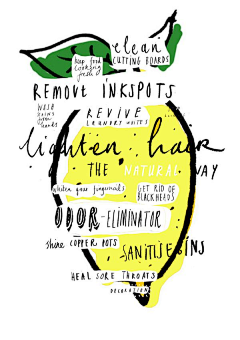 clean
keep food
looking
fresh
CUTTING BOARDS
REMOVE INKSPOTS
WASH
stains
from
hands
REVIVE
LAUNDRY WHITES
lighten hair
THE NATURAL WAY
whiten your fingernails
GET RID OF
BLACKHEADS
ODOR-ELIMINATOR
shine COPPER POTS
SANITIZE BINS
HEAL SORE THROATS
DECORATION